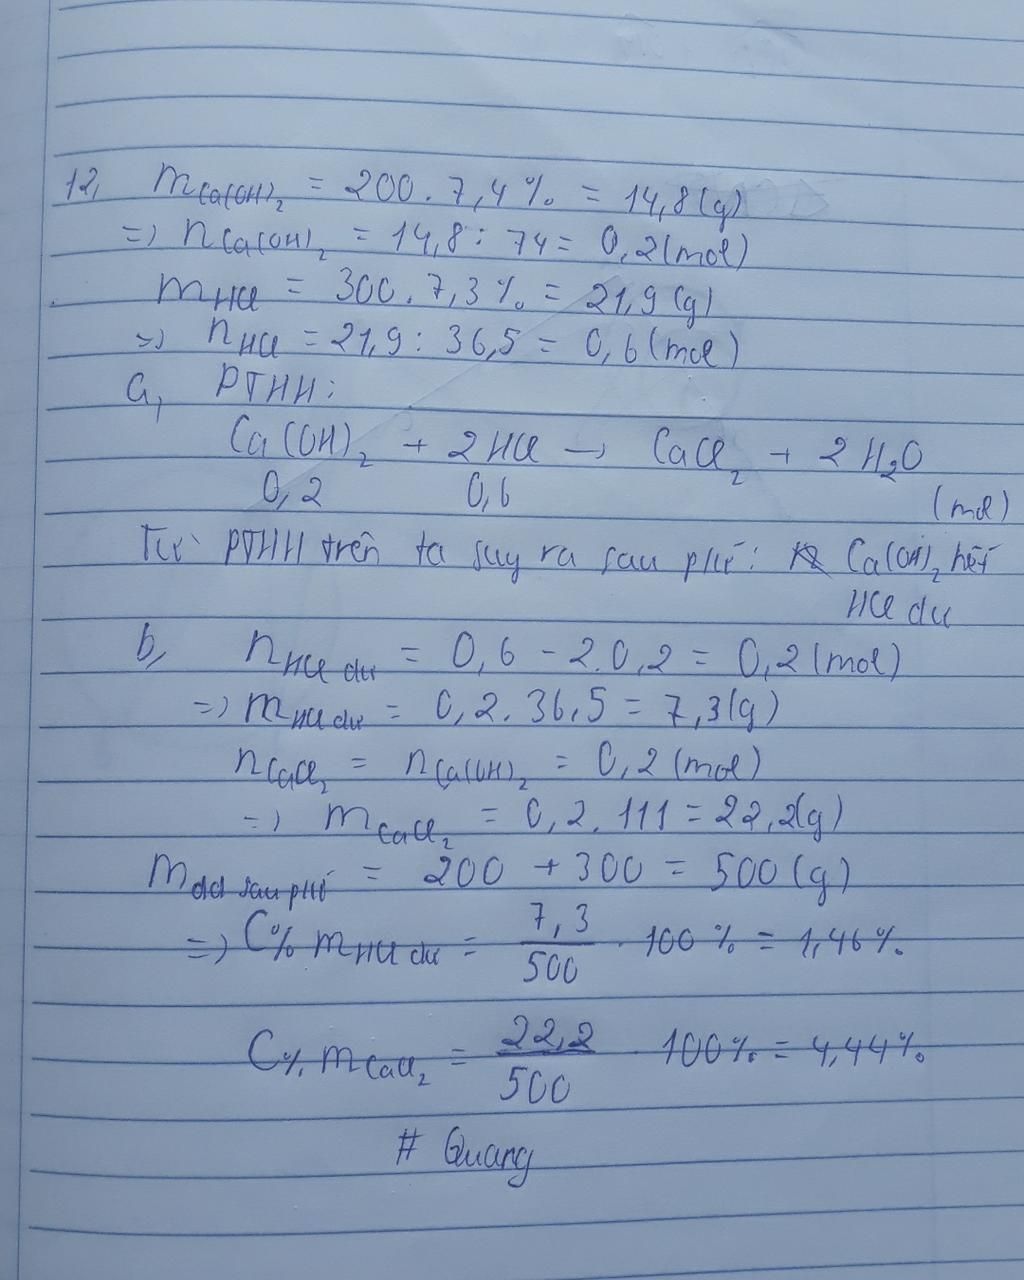 12, mCa(OH)₂ = 200 . 7,4% = 14,8(g)
=) nCa(OH)₂ = 14,8 : 74 = 0,2(mol)
mHCl = 300. 7,3% = 21,9(g)
=) nHCl = 21,9 : 36,5 = 0,6(mol)
a, PTHH:
Ca(OH)₂ + 2HCl → CaCl₂ + 2H₂O
0,2 0,6 (mol)
Từ PTHH trên ta suy ra sau pứ: Ca(OH)₂ hết
HCl dư
b, nHCl dư = 0,6 - 2.0,2 = 0,2(mol)
=) mHCl dư = 0,2.36,5 = 7,3(g)
nCaCl₂ = nCa(OH)₂ = 0,2(mol)
=) mCaCl₂ = 0,2.111 = 22,2(g)
mdd sau pứ = 200 + 300 = 500(g)
=) C% mHCl dư = 7,3/500 . 100% = 1,46%.
C% mCaCl₂ = 22,2/500 . 100% = 4,44%.
# Quang